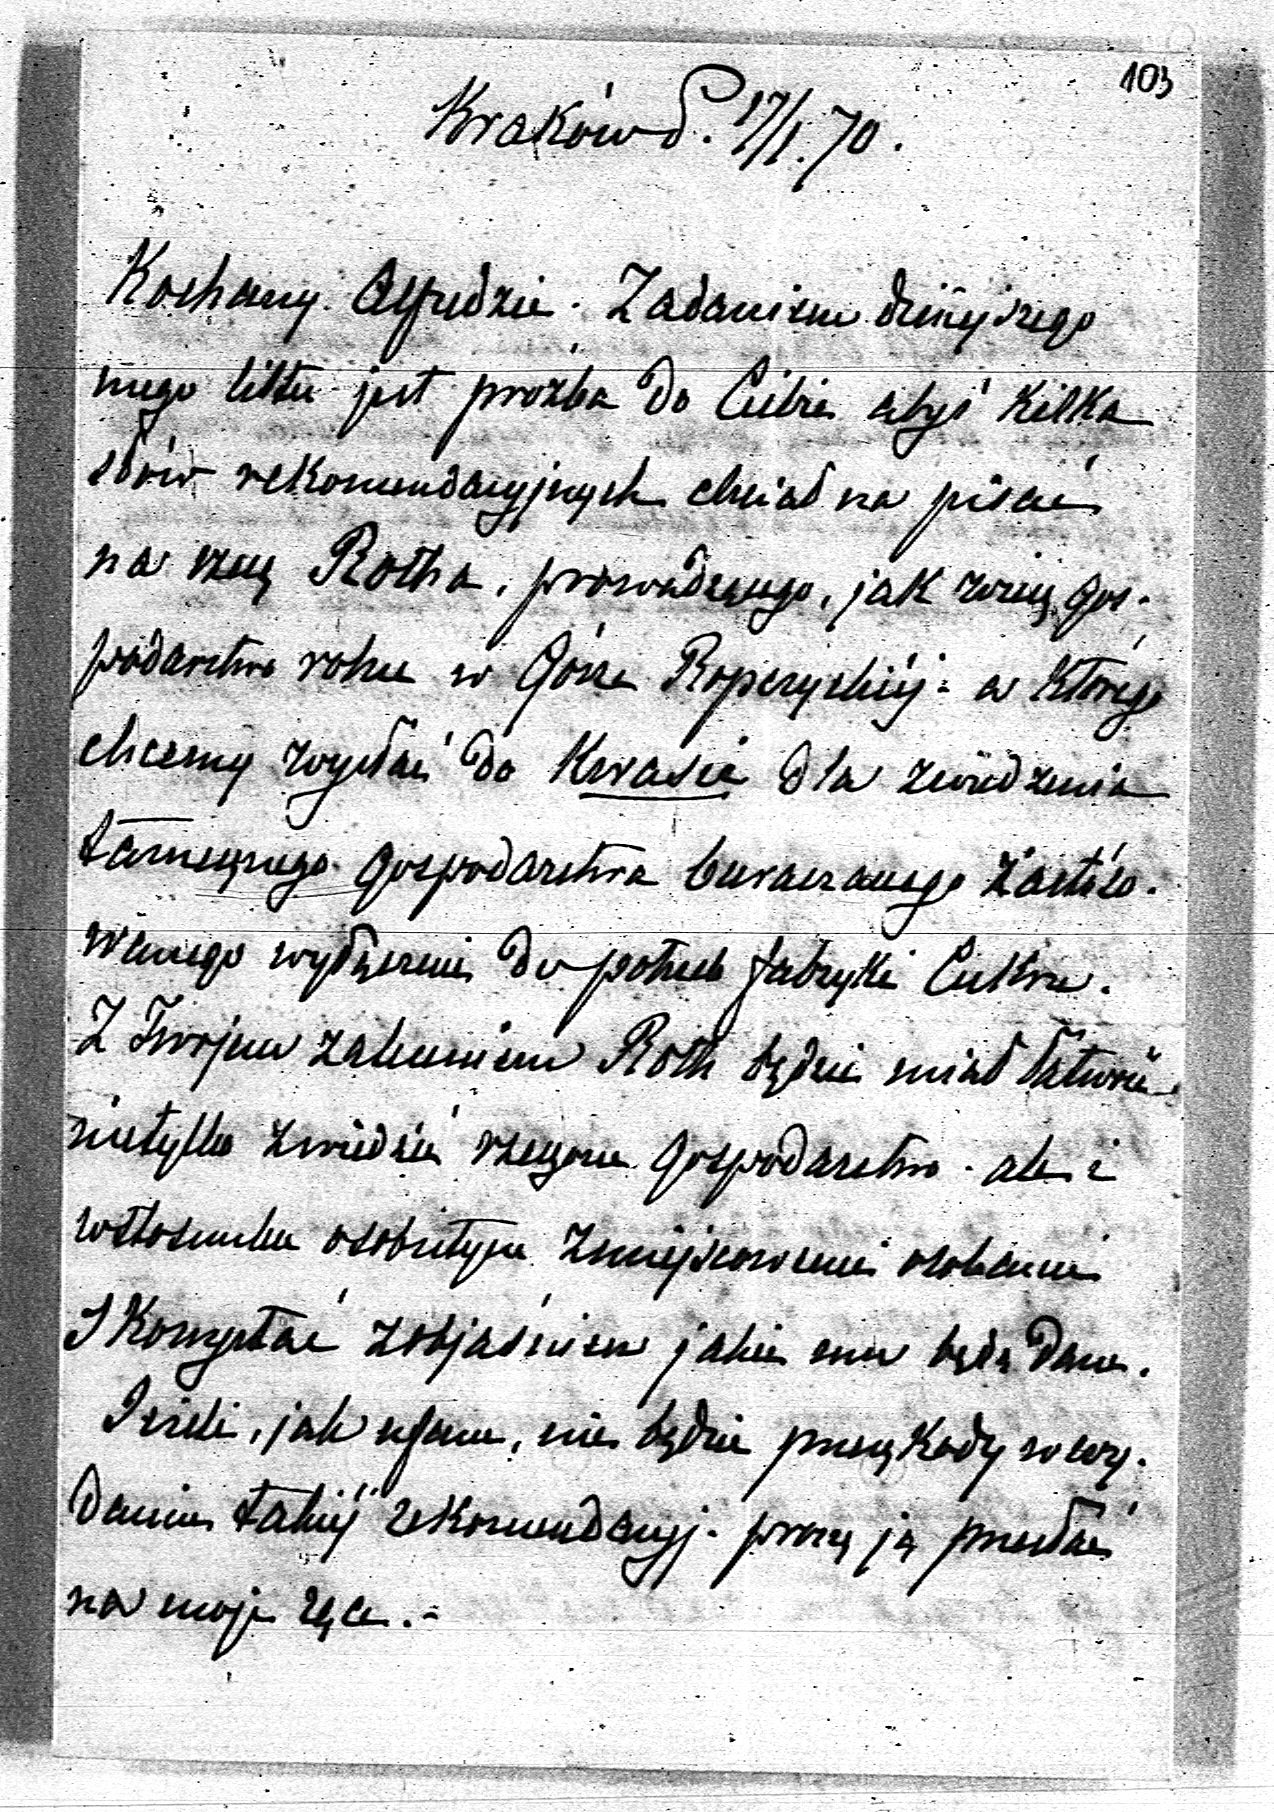 103
Kraków d. 17/1. 70.
Kochany Alfredzie. Zadaniem dzisiejszego
mego listu jest prośba do Ciebie abyś kilka
słów rekomendacyjnych chciał na pisać
na rzecz Rotha, prowadzącego, jak wiesz, gos-
podarstwo rolne w Górze Ropczyckiéj - a którego
chcemy wysłać do Kwasic dla zwiedzenia
tamecznego gospodarstwa buraczanego zastóso-
wanego wyłącznie do potrzeb fabryki Cukru.
Z Twojem zaleceniem Roth będzie miał łatwość
nietylko zwiedzić rzeczone gospodarstwo - ale i
w stosunku osobistym z miejscowemi osobami
skorzystać z objaśnień jakie mu będą dane.
Jeżeli, jak ufam, nie będzie przeszkody w wy-
daniu takiéj rekomendacyi - proszę ją przesłać
na moje ręce. -